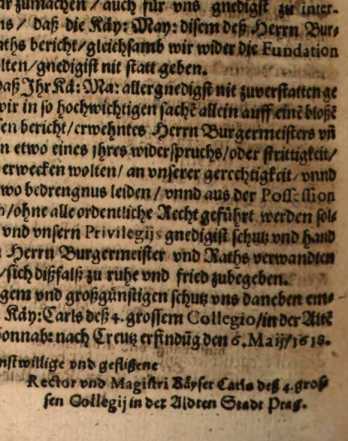 zumachen / auch für vns gnedigst zu inter-
ns / daß die Käy: May: disem deß Herrn Bur-
aths bericht / gleichsamb wir wider die Fundation
olten / gnedigist nit statt geben.
daß Ihr Kä: Ma: allergnedigst nit zuverstatten ge
wir in so hochwichtigen sachē allein auff eine bloße
sen bericht / erwehntes Herrn Burgermeisters vñ
n etwo eines ihres widerspruchs / oder strittigkeit /
erwecken wolten / an vnserer gerechtigkeit / vnnd
wo bedrengnus leiden / vnnd aus der Possession
n / ohne alle ordentliche Recht geführt werden sol-
vnd vnsern Privilegijs gnedigist schutz vnd hand
n Herrn Burgermeister vnd Raths verwandten
/ sich dißfalß zu ruhe vnd fried zubegeben.
gem vnd großgünstigen schutz vns daneben em-
Käy: Carls deß 4. grossem Collegio / in der Altē
Sonnab: nach Creutz erfindūg den 6. Maij / 1618.
nstwillige vnd geflißne
Rector vnd Magistri Käyser Carls deß 4. gros
sen Collegij in der Aldten Stadt Prag.